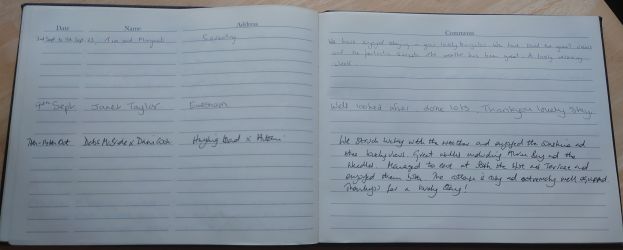 Date Name Address Comments
2nd Sept to 9th Sept 23, and Margaret Coventry
We have enjoyed staying in your lovely bungalow. We have loved the great views
and the fantastic sunsets. The weather has been great. A lovely relaxing
week.
9th Sept Janet Taylor Evesham
Well looked after, done lots, Thankyou lovely stay.
7th - 14th Oct Debs McBride x Dave Cook Haying x
We struck lucky with the weather and enjoyed the sunshine and
the lovely views. Great walks including Bay and the
Needles. Managed to eat at both the and Terrace and
enjoyed them both. The cottage is cosy and extremely well equipped.
Thankyou for a lovely stay!